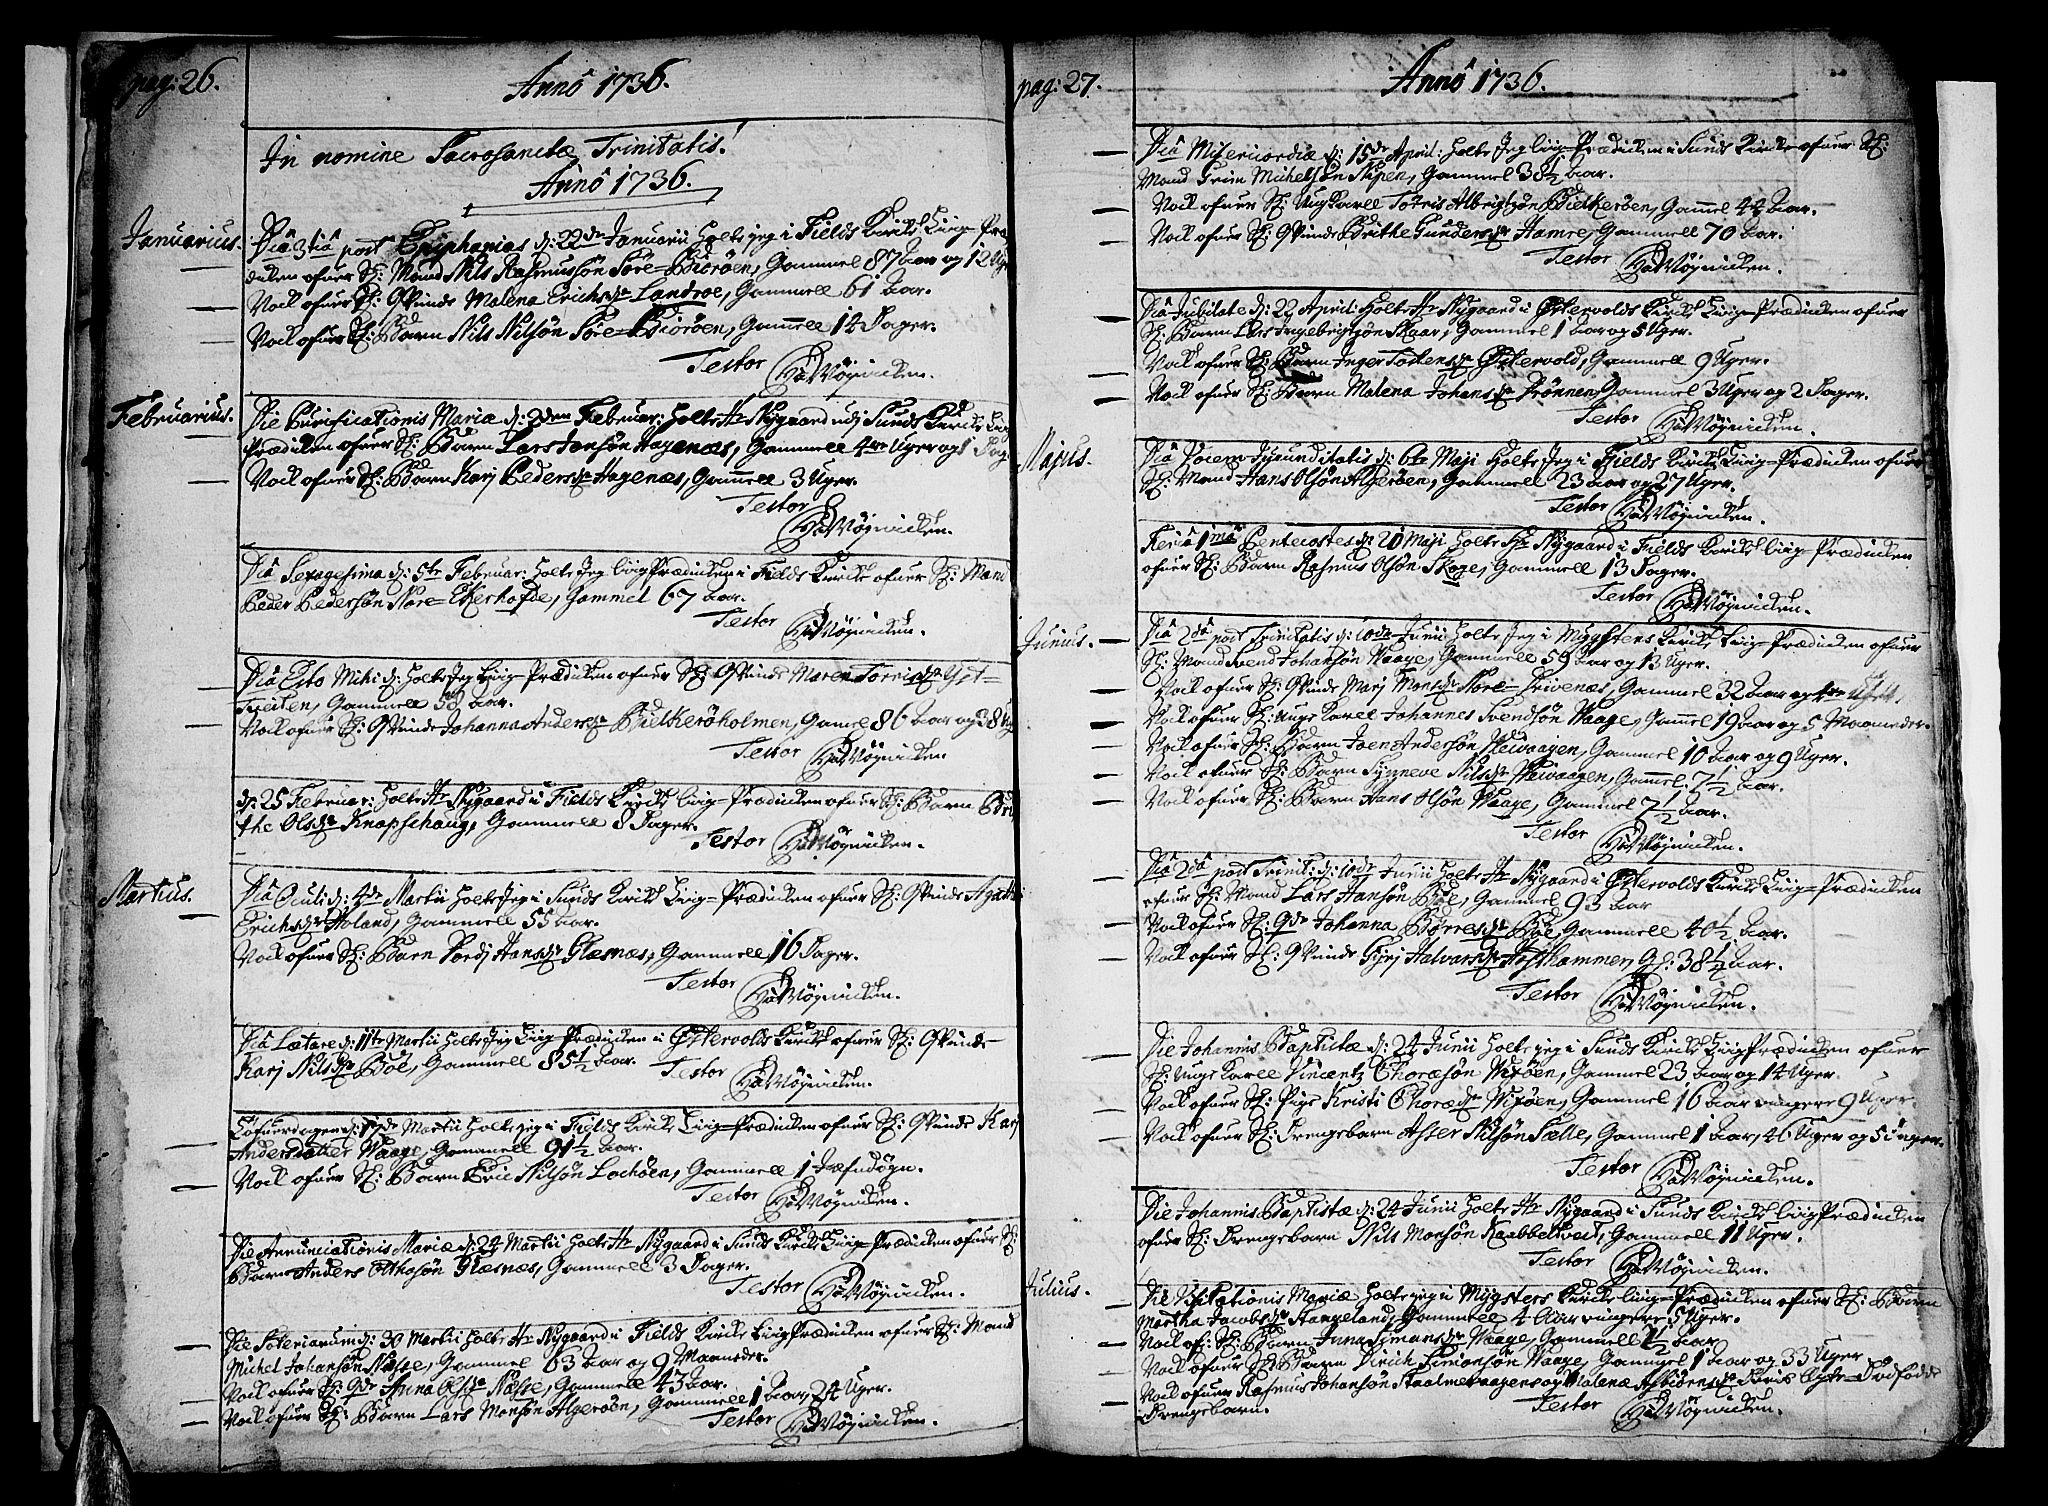 pag: 26.
Annô 1736.
In nomine Sacrosanctæ Trinitatis!
Annô 1736.
Januarius.
Diâ 3tiâ post Epiphanias d: 22de Januarii holte jeg i Fields Kirke Liig-Præ-
diken ofuer Sl: Mand Nils Rasmussøn Søre-Biørøen, Gammel 87 Aar og 12 Uger
Nock ofuer Sl: Qvinde Malena Erichsdr Landroe, Gammell 61 Aar.
Nock ofuer Sl: Barn Nils Nilsøn Søre-Biørøen, Gammell 14 Dager.
Testor
Februarius.
Die Purificationis Mariæ d: 2den Februar: holte Hr Nygaard udj Sunds Kirke Liig
Prædiken ofuer Sl: Barn Lars Jonsøn Hagenæs, Gammell 4re Uger og 1 Dag
Nock ofuer Sl: Barn Karj Pedersdr Hagenæs, Gammell 3 Uger.
Testor
Diâ Sexagesima d: 5te Februar: holte Jeg Liig Prædiken i Fields Kirke ofuer Sl: Mand
Peder Pedersøn Nore-Ekerhofde, Gammel 67 Aar.
Testor
Diâ Esto Mihi d: holte Jeg Liig-Prædiken ofuer Sl: Qvinde Maren Torrisdr
Tveiten, Gammell 58 Aar.
Nock ofuer Sl: Qvinde Johanna Andersdr Bielkerøholmen, Gamel 86 Aar og 38 Ug
Testor
d: 25 Februar: holte Hr Nygaard i Fields Kirke Liig-Prædiken ofuer Sl: Barn Bri
the Olsdr Knapschaug, Gammell 8 Dager.
Testor
Martius.
Diâ Oculi d: 4de Martii holte Jeg i Sunds Kirke Liig-Prædiken ofuer Sl: Qvinde
Erichsdr Holand, Gammell 55 Aar.
Nock ofuer Sl: Barn Hansdr Glæsnæs, Gammell 16 Dager.
Testor
Diâ Lætare d: 11te Martii holte Jeg Liig-Prædiken i Østervolds Kirke ofuer Sl: Qvinde
Karj Nilsdr Bøl, Gammell 85½ Aar.
Testor
Løfuerdagen d: 17de Martii holte jeg i Fields Kirke Liig-Prædiken ofuer Sl: Qvinde Karj
Andersdatter Waage, Gammell 91½ Aar.
Nock ofuer Sl: Barn Eric Nilsøn Lochøen, Gammell 1 Jæfndøgn.
Testor
Die Annunciationis Mariæ d: 24 Martii holte Hr Nygaard i Sunds Kirke Liig-Prædiken ofuer Sl:
Barn Anders Otthosøn Glæsnæs, Gammell 3 Dager.
Testor
Die Soteriarum d: 30 Martii holte Hr Nygaard i Fields Kirke Liig Prædiken ofuer Sl: Mand
Michel Johansøn Næsse, Gammel 63 Aar og 9 Maaneder.
Nock ofuer Sl: Qde Anna Olsdr Næsse, Gammell 43 Aar.
Nock ofuer Sl: Barn Lars Monsøn Algerøen, Gammell 1 Aar, 24 Uger.
Testor
pag: 27.
Annô 1736.
Diâ Misericordiæ d: 15de April: holte Jeg Liig-Prædiken i Sunds Kirke ofuer Sl:
Mand Michelsøn Gammel 38½ Aar.
Nock ofuer Sl: Ung Karll Torris Albrigtsøn Bielkerøen, Gammel 44 Aar.
Nock ofuer Sl: Qvinde Brithe Gundersdr Hamre, Gammell 70 Aar.
Testor
Diâ Jubilate d: 22 April: holte Hr Nygaard i Østervolds Kirke Liig-Prædiken ofuer
Sl: Barn Lars Ingebrigtsøn Skaar, Gammel 1 Aar og 5 Uger.
Nock ofuer Sl: Barn Inger Dr Østervold, Gammell 9 Uger.
Nock ofuer Sl: Barn Malena Johansdr Drönnen, Gammell 3 Uger og 2 Dager.
Testor
Majus.
Diâ Vocem Jucunditatis d: 6te Maji holte Jeg i Fields Kirke Liig-Prædiken ofuer
Sl: Mand Hans Olsøn Algerøen, Gammell 23 Aar og 27 Uger.
Testor
Feria 1mâ Pentecostes d: 20 Maji holte Hr Nygaard i Fields Kirke Liig-Prædiken
ofuer Sl: Barn Rasmus Olsøn Skoge, Gammell 13 Dager.
Testor
Junius.
Diâ 2dâ post Trinitatis d: 10de Junii holte Jeg i Mygsters Kirke Liig-Prædiken ofuer
Sl: Mand Svend Johansøn Waage, Gammell 59 Aar og 13 Uger.
Nock ofuer Sl: Qvinde Marj Monsdr Nore-Drivenæs, Gammell 32 Aar og 4re Uger.
Nock ofuer Sl: Unge Karll Johannes Svendsøn Waage, Gammel 19 Aar og 5 Maaneder.
Nock ofuer Sl: Barn Joen Andersøn Gammel 10 Aar og 9 Uger.
Nock ofuer Sl: Barn Synneve Nilsdr Gammel: 7½ Aar.
Nock ofuer Sl: Barn Hans Olsøn Waage, Gammell 7½ Aar.
Testor
Diâ 2dâ post Trinit: d: 10de Junii holte Hr Nygaard i Østervolds Kirke Liig-Prædiken
ofuer Sl: Mand Lars Hansøn Bøl, Gammel 93 Aar
Nock ofuer Sl: Qde Johanna Børresdr Bøl, Gammell 40½ Aar.
Nock ofuer Sl: Qvinde Gyrj Halvarsdr Høsthammer, G: 38¼ Aar.
Testor
Die Johannis Baptistæ d: 24 Junii holte jeg i Sunds Kirke Liig Prædiken ofuer
Sl: Unge Karll Vincentz Thoresøn Wixøen, Gammel 23 Aar og 14 Uger.
Nock ofuer Sl: Pige Kristi Thoredr Wixøen, Gammel 16 Aar ringere 9 Uger.
Nock ofuer Sl: Drengebarn Nilsøn Sælle, Gammel 1 Aar, 46 Uger og 5 Dager.
Testor
Die Johannis Baptistæ d: 24 Junii holte Hr Nygaard i Sunds Kirke Liig Prædiken
ofuer Sl: Drengebarn Nils Monsøn Krabbeltveid, Gammell 11 Uger.
Testor
Julius.
Die Visitationis Mariæ holte jeg i Mygsters Kirke Liig-Prædiken ofuer Sl: Barn
Martha Jacobsdr Stangeland, Gammell 4 Aar ringere 5 Uger.
Nock of: Sl: Barn Anna Simonsdr Waage, Gammell Aar
Nock ofuer Sl: Barn Dirich Simonsøn Waage, Gammel 1 Aar og 33 Uger
Nock ofuer Rasmus Johansøn og Malena Asbiørnsdr Dødfødde
Drengebarn.
Testor